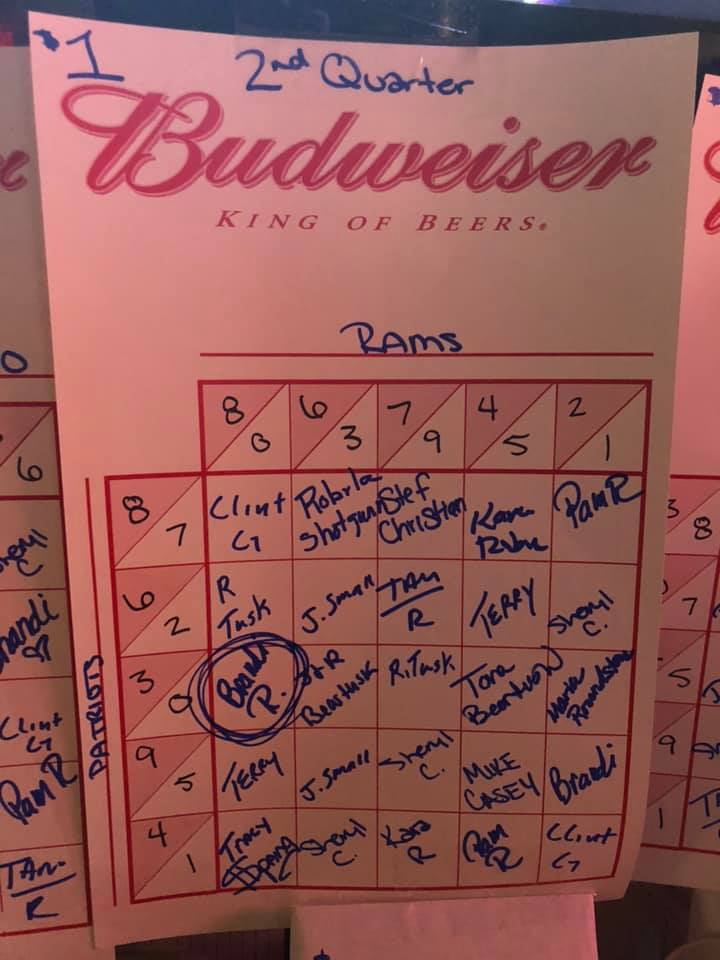 $1 2nd Quarter
Budweiser
KING OF BEERS®
RAMS
8 6 7 4 2
0 3 9 5 1
PATRIOTS
8 7 Clint G Roberta Shotgun Stef Christian Kara Pam R
6 2 R Tusk J. Small TAM R TERRY Sheryl C.
3 0 Brandi R. R Beartusk R. Tusk Tora Maria
9 5 TERRY J. Small Sheryl C. MIKE CASEY Brandi
4 1 Tracy Sheryl C. Kara R Pam R Clint G
0
6
Sheryl C
Brandi
Clint G
Pam R
TAM R
3 8
7
5
9
1
$